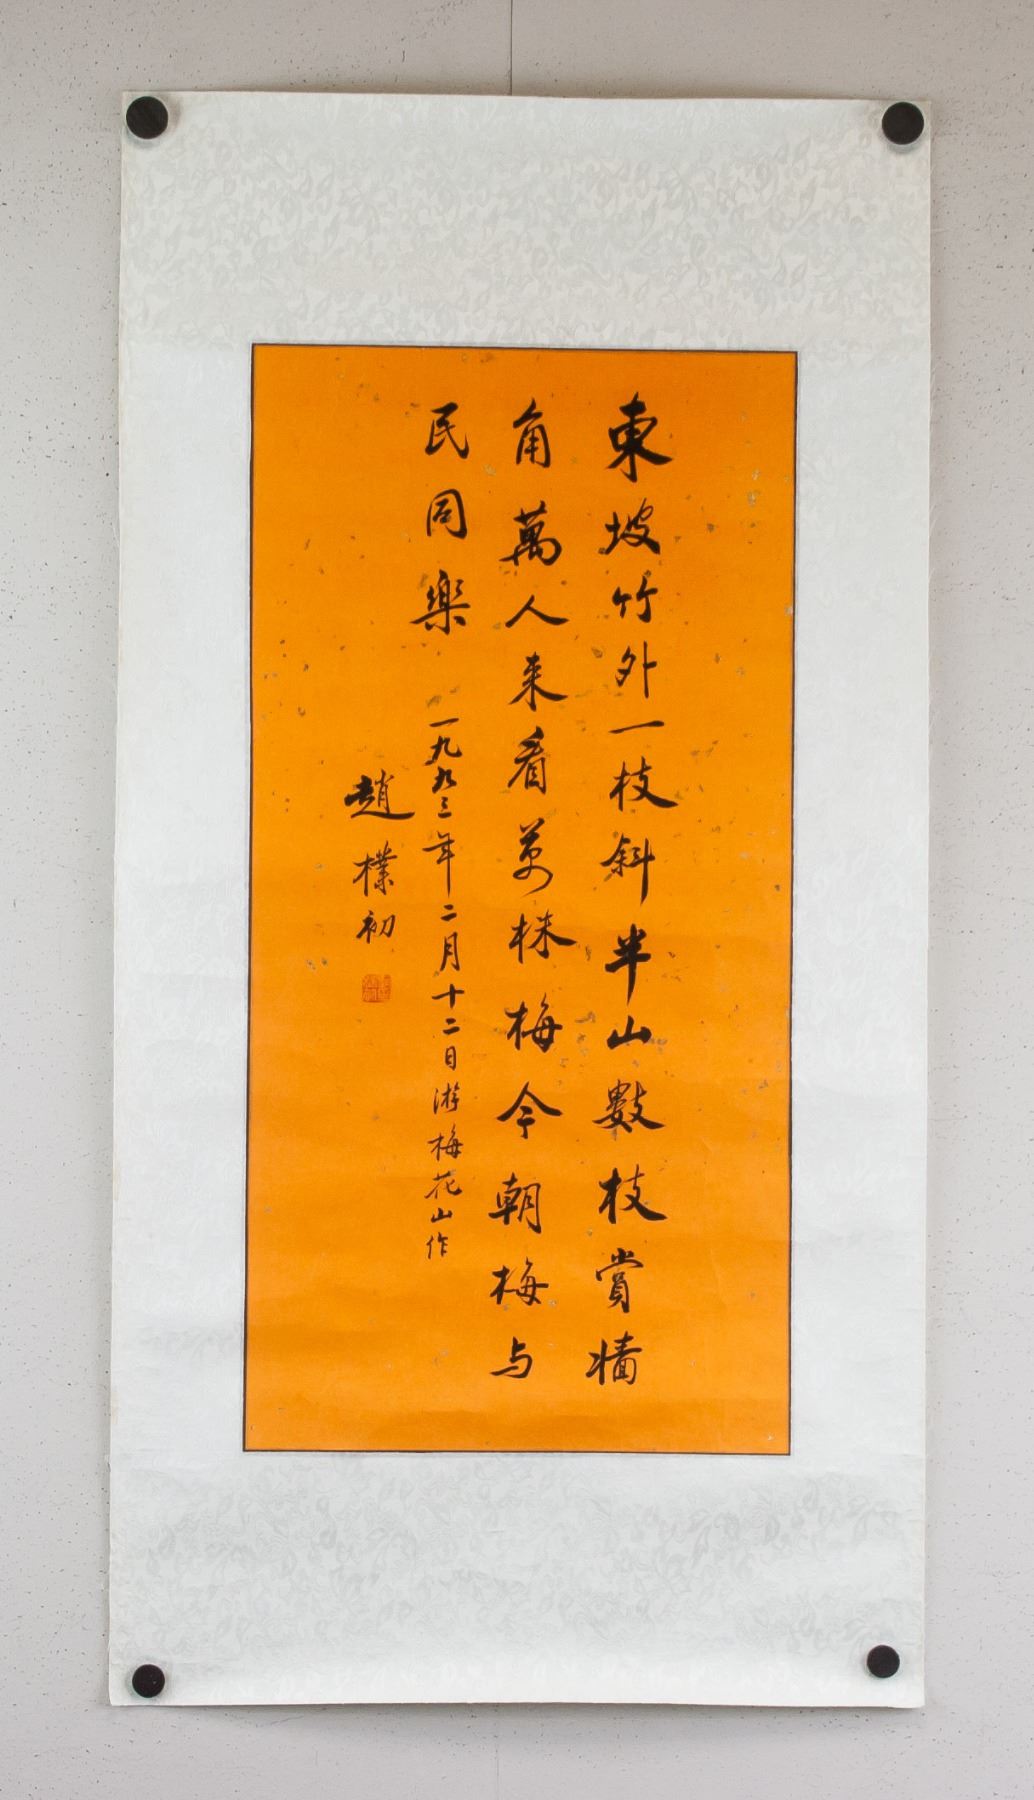 東坡竹外一枝斜半山數枝賞牆
角萬人来看万株梅今朝梅与
民同樂
一九九三年二月十二日游梅花山作
趙樸初